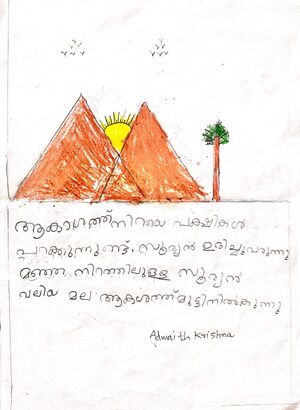 ആകാശത്ത്നിറയെ പക്ഷികൾ
പറക്കുന്നുണ്ട്. സൂര്യൻ ഉദിച്ചുവരുന്നു
മഞ്ഞ നിറത്തിലുള്ള സൂര്യൻ
വലിയ മല ആകശത്ത്മുട്ടിനിൽകുന്നു
Adwaith Krishna